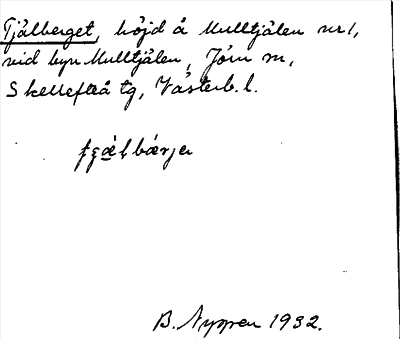 Tjålberget, höjd å Mulltjålen nr 1,
vid byn Mulltjålen, Jörn sn,
Skellefteå tg, Västerb. l.
bærjə
B. Nygren 1932.